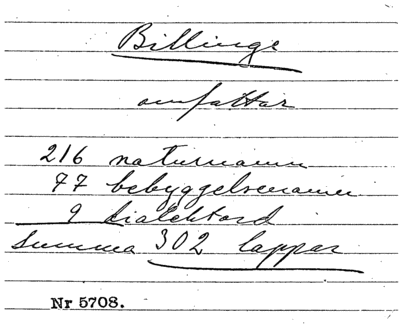 Billinge
omfattar
216 naturnamn
77 bebyggelsenamn
9 dialektord
Summa 302 lappar
Nr 5708.